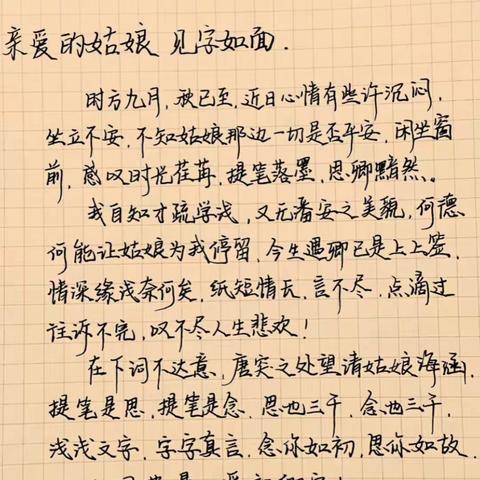 亲爱的姑娘 见字如面.
时方九月,秋已至,近日心情有些许沉闷,
坐立不安,不知姑娘那边一切是否平安,闲坐窗
前,感叹时光荏苒,提笔落墨,思卿黯然。
我自知才疏学浅,又无潘安之美貌,何德
何能让姑娘为我停留,今生遇卿已是上上签,
情深缘浅奈何矣,纸短情长,言不尽,点滴过
往诉不完,叹不尽人生悲欢!
在下词不达意,唐突之处望请姑娘海涵,
提笔是思,提笔是念,思也三千,念也三千,
浅浅文字,字字真言,念你如初,思你如故.